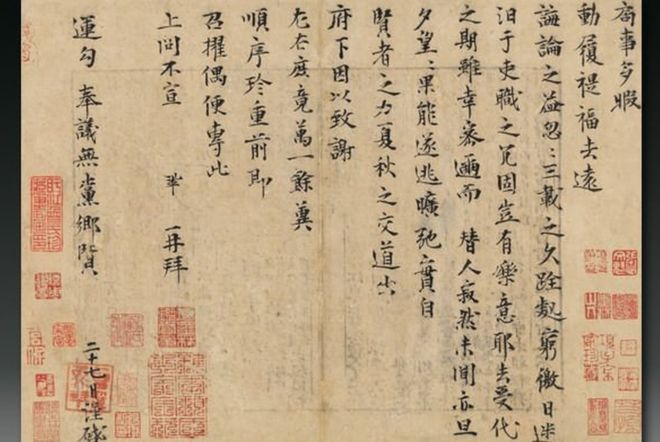 局事多暇
動履禔福去遠
誨論之益忽〻三載之久跧處窮徼日迷
汩于吏職之冗固豈有樂意耶去受代
之期雖幸密邇而替人寂然未聞亦旦
夕望〻果能遂逃曠弛實自
賢者之力夏秋之交道出
府下因以致謝
左右庶竟萬一餘冀
順序珍重前即
召擢偶便專此
上問不宣 鞏 再拜
運勾奉議無黨鄉賢
二十七日謹啟